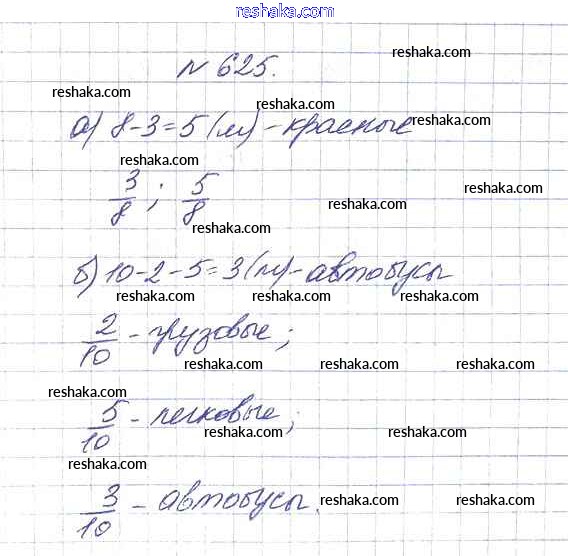 reshaka.com
reshaka.com
№ 625.
reshaka.com
reshaka.com
reshaka.com
а) 8-3=5 (м) - красные
reshaka.com
reshaka.com
3/8 ; 5/8
reshaka.com
reshaka.com
reshaka.com
б) 10-2-5=3 (м) - автобусы
reshaka.com reshaka.com reshaka.com
2/10 - грузовые;
reshaka.com reshaka.com reshaka.com
reshaka.com
5/10 - легковые;
reshaka.com reshaka.com
reshaka.com
3/10 - автобусы.
reshaka.com reshaka.com